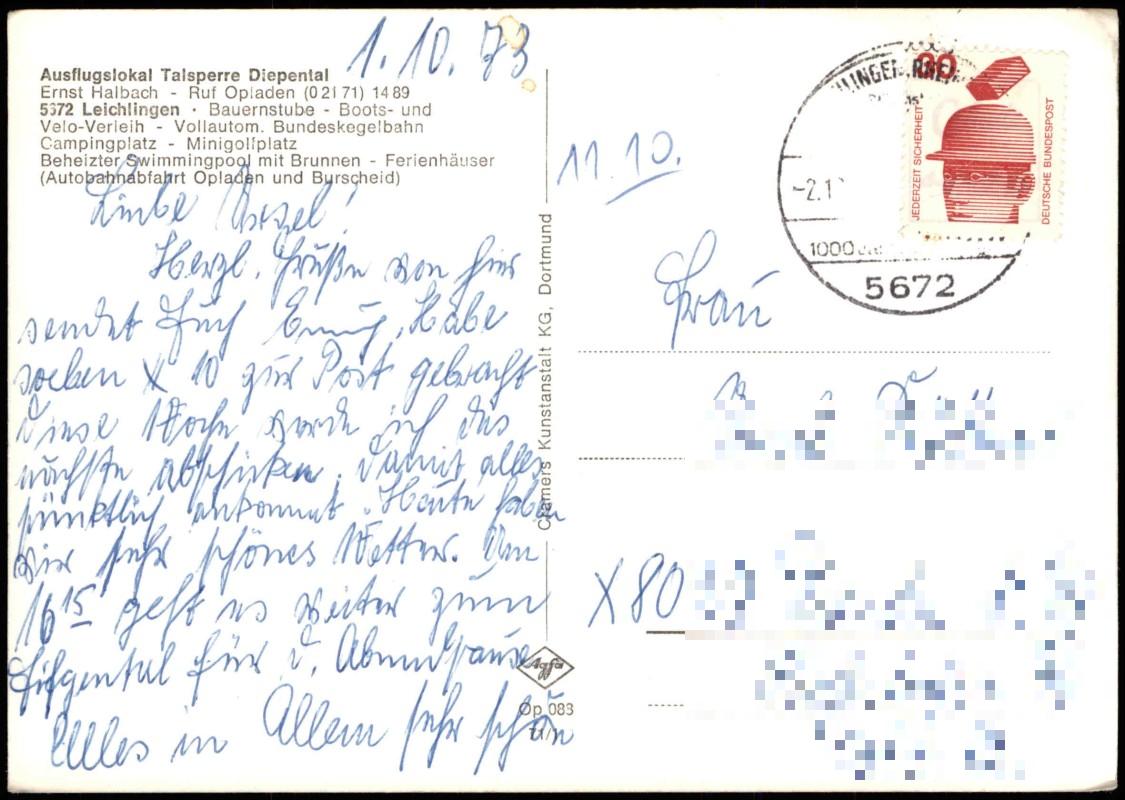 1.10.73
Ausflugslokal Talsperre Diepental
Ernst Halbach - Ruf Opladen (0 21 71) 14 89
5672 Leichlingen · Bauernstube - Boots- und
Velo-Verleih - Vollautom. Bundeskegelbahn
Campingplatz - Minigolfplatz
Beheizter Swimmingpool mit Brunnen - Ferienhäuser
(Autobahnabfahrt Opladen und Burscheid)
Liebe
Herzl. Grüße von hier
sendet Euch Habe
soeben X 10 zur Post gebracht
Diese Woche werde ich das
nächste abschicken. Damit alles
pünktlich ankommt. Heute haben
wir sehr schönes Wetter. Um
16 15 geht es weiter zum
Eifgental für d. Abendpause
Alles in Allem sehr schön
Cramers Kunstanstalt KG, Dortmund
Agfa
Op 083
11.10.
Frau
X 80
60
JEDERZEIT SICHERHEIT
DEUTSCHE BUNDESPOST
-2.1
5672